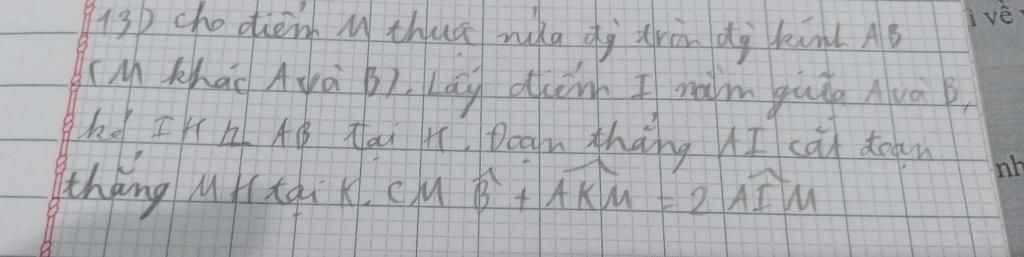 13) Cho điểm M thuộc nửa đg tròn đg kính AB
i về
(M khác A và B). Lấy điểm I nằm giữa A và B,
kẻ IH ⊥ AB tại H. Đoạn thẳng AI cắt đoạn
nh
thẳng MH tại K. CM B̂ + \widehat{AKM} = 2 \widehat{AIM}